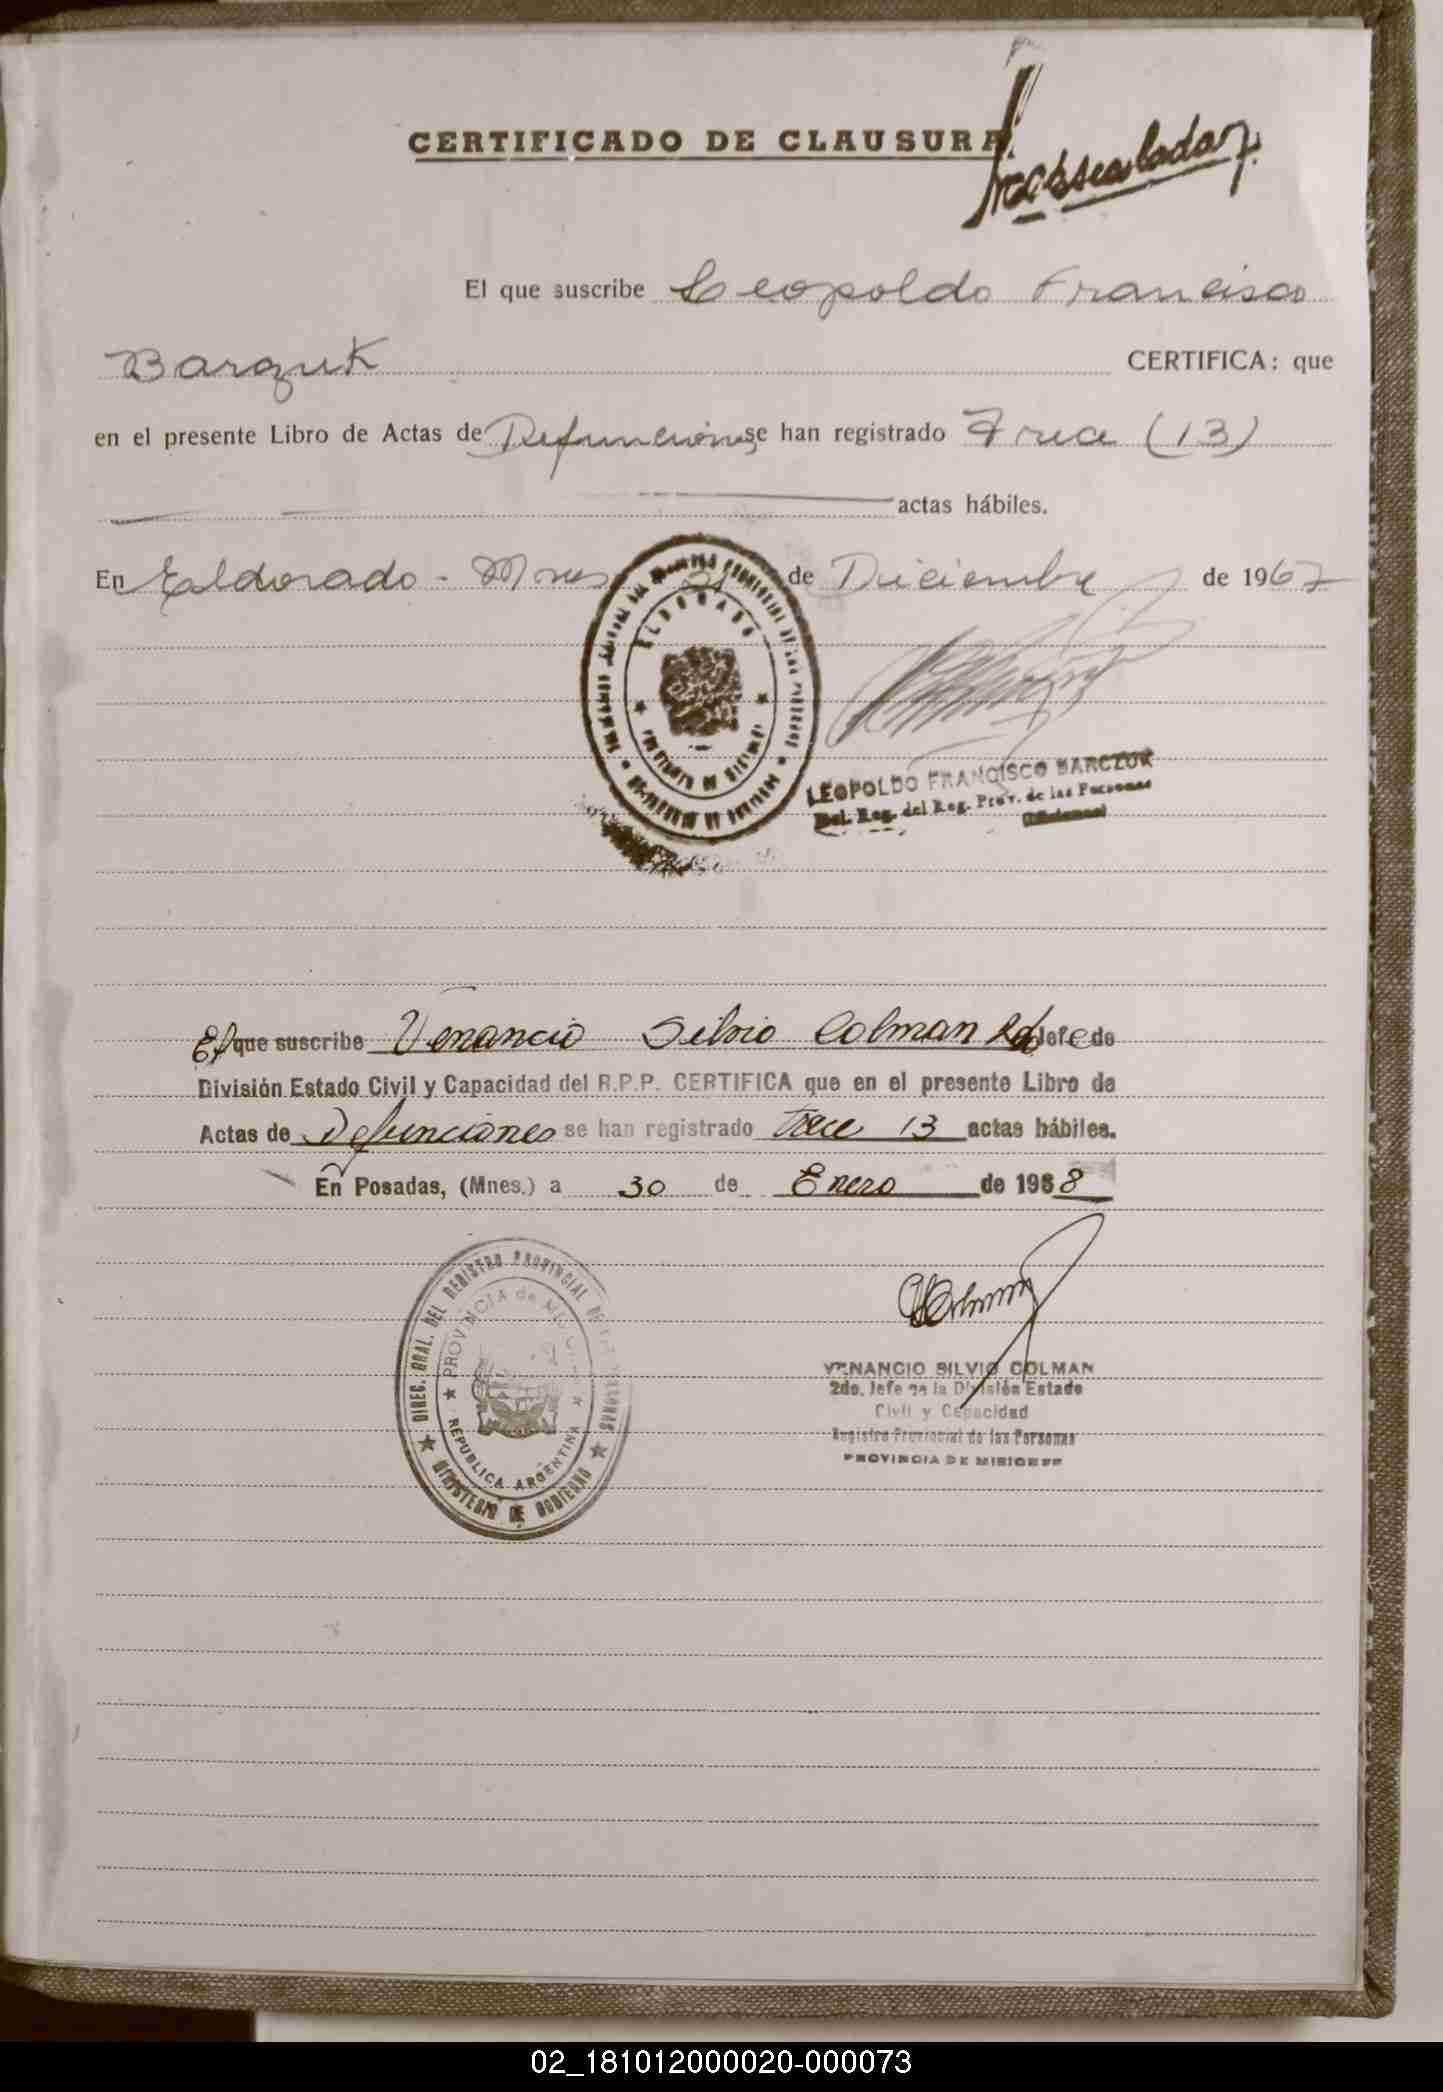 CERTIFICADO DE CLAUSURA
El que suscribe Leopoldo Francisco
Barczuk CERTIFICA: que
en el presente Libro de Actas de Defunciones se han registrado Trece (13)
actas hábiles.
En Eldorado - Mnes 31 de Diciembre de 1967
ELDORADO
LEOPOLDO FRANCISCO BARCZUK
Del. Reg. del Reg. Prov. de las Personas
El que suscribe Venancio Silvio Colman 2do Jefe de
División Estado Civil y Capacidad del R.P.P. CERTIFICA que en el presente Libro de
Actas de Defunciones se han registrado trece 13 actas hábiles.
En Posadas, (Mnes.) a 30 de Enero de 1968
DIREC. GRAL. DEL REGISTRO PROVINCIAL DE LAS PERSONAS
PROVINCIA de MISIONES
REPUBLICA ARGENTINA
MINISTERIO DE GOBIERNO
VENANCIO SILVIO COLMAN
2do. Jefe de la División Estado
Civil y Capacidad
Registro Provincial de las Personas
PROVINCIA DE MISIONES
02_181012000020-000073